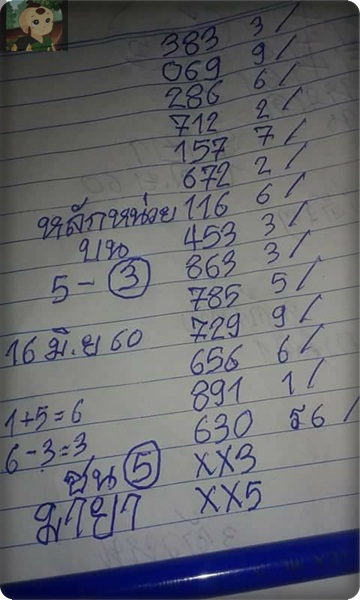 383 3/
069 9/
286 6/
712 2/
157 7/
672 2/
หลักหน่วย 116 6/
บน 453 3/
5-3 863 3/
785 5/
16 มิ.ย 60 729 9/
656 6/
1+5=6 891 1/
6-3=3 630 86/
ชน 5 XX3
มายา XX5